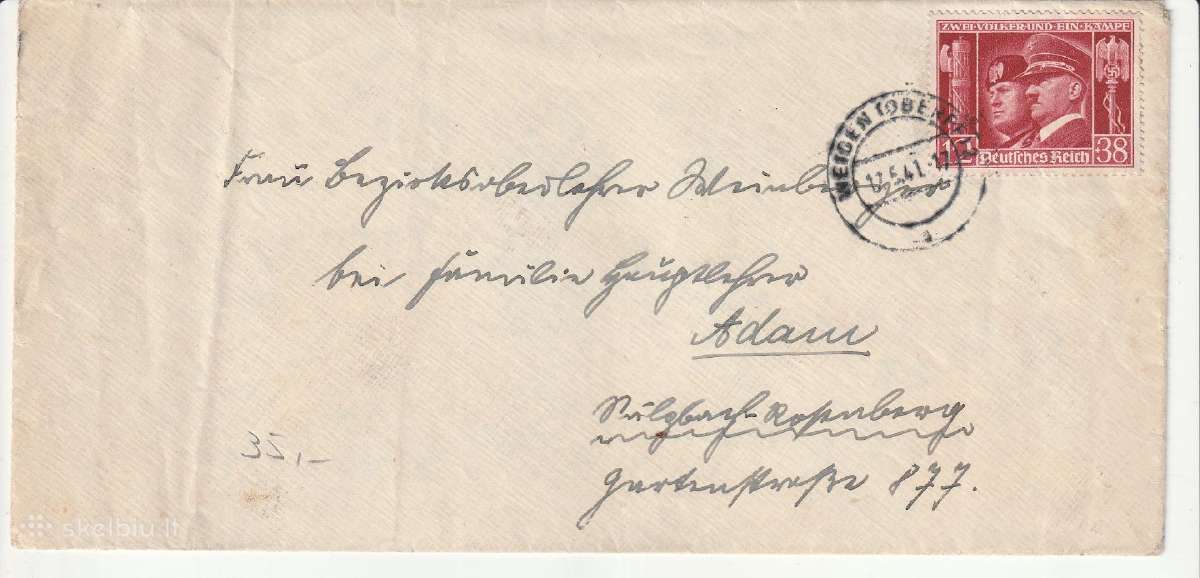 ZWEI·VÖLKER·UND·EIN·KAMPF
12 Deutsches Reich 38
WEIDEN (OBERPF)
17.5.41.17
a
Frau Bezirksoberlehrer Weinberger
bei Familie Hauptlehrer
Adam
Sulzbach-Rosenberg
Gartenstraße 877.
35,-
skelbiu.lt